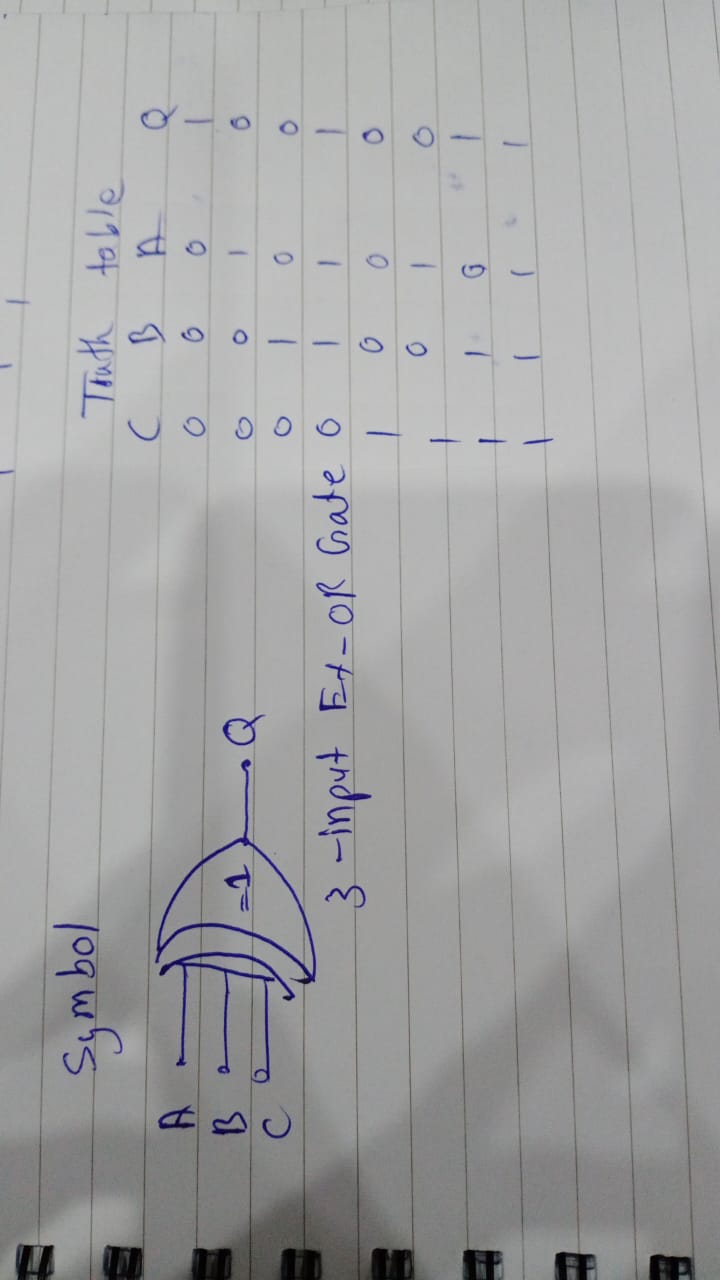 Symbol
A
B
C
=1
Q
3-input Ex-OR Gate
Truth table
C B A Q
0 0 0 1
0 0 1 0
0 1 0 0
0 1 1 1
1 0 0 0
1 0 1 0
1 1 0 1
1 1 1 1